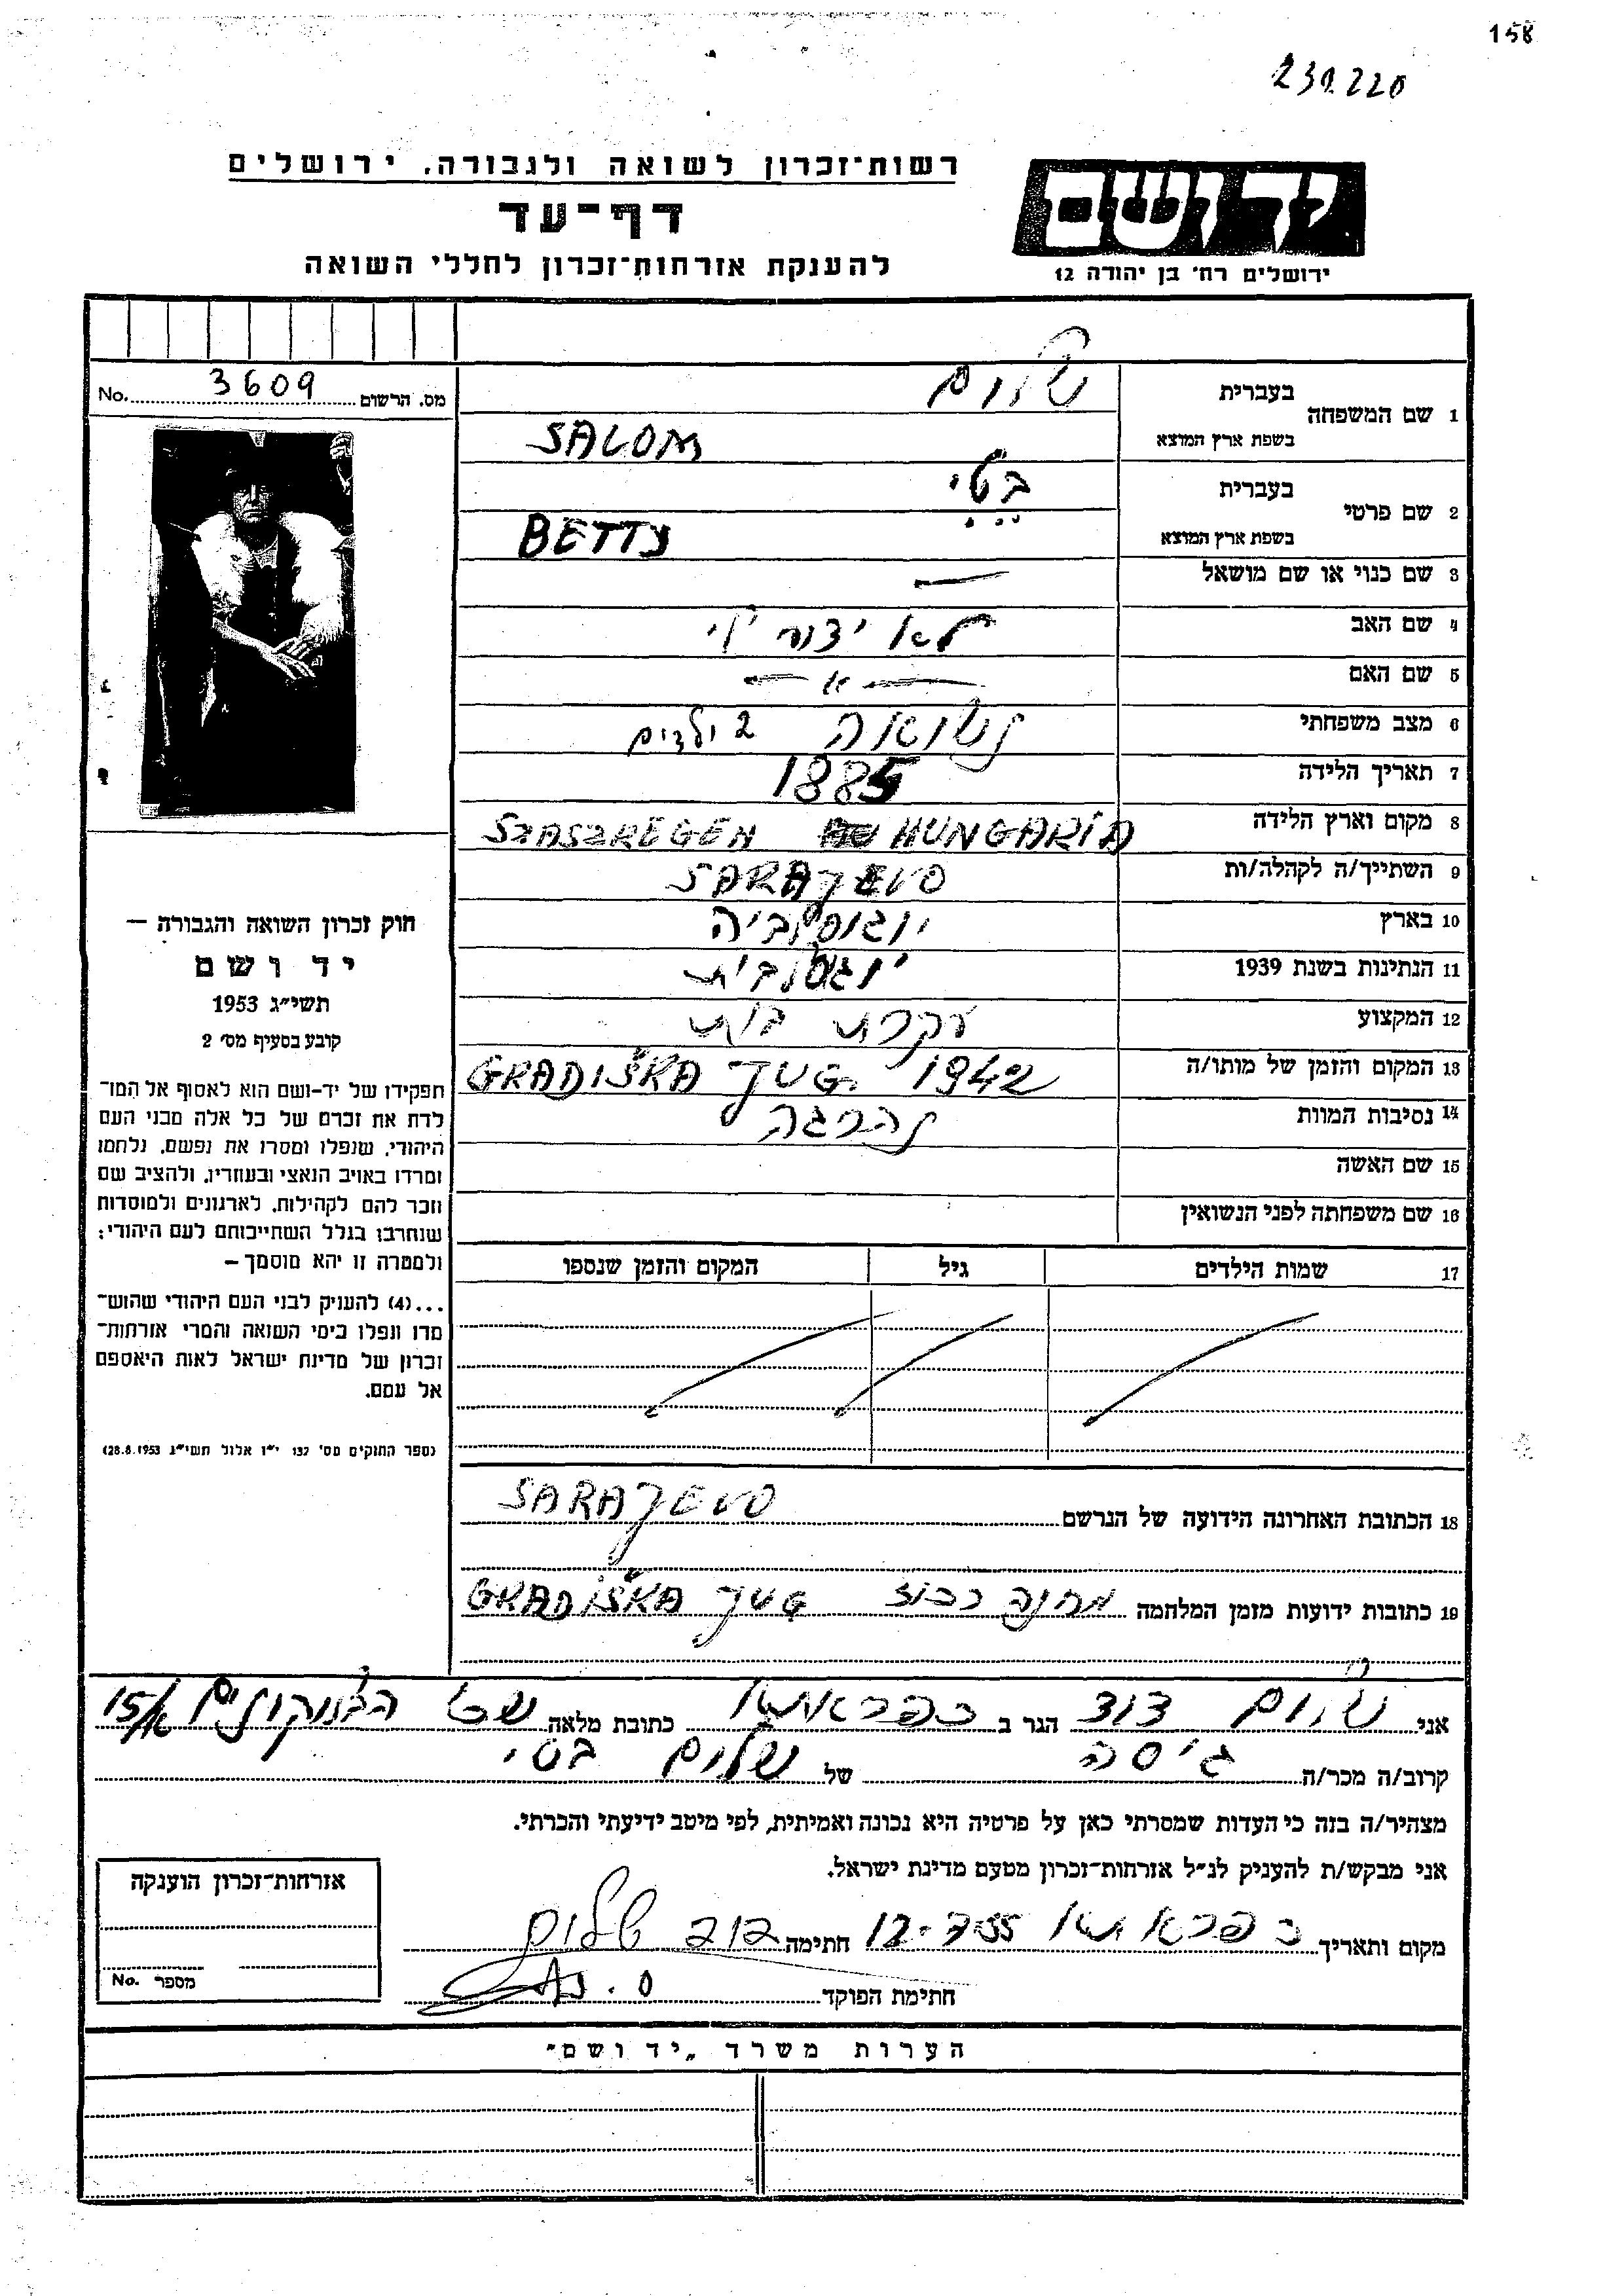 158
230.220
רשות־זכרון לשואה ולגבורה, ירושלים
דף־עד
להענקת אזרחות־זכרון לחללי השואה
יד ושם
ירושלים רח' בן יהודה 12
No. 3609 מס. הרשום
1 שם המשפחה בעברית שלום
בשפת ארץ המוצא SALOM
2 שם פרטי בעברית בטי
בשפת ארץ המוצא BETTY
3 שם כנוי או שם מושאל —
4 שם האב לא ידוע לי
5 שם האם — " —
6 מצב משפחתי נשואה 2 ילדים
7 תאריך הלידה 1885
8 מקום וארץ הלידה SZASZREGEN HUNGARIA
9 השתייך/ה לקהלה/ות SARAJEVO
10 בארץ יוגוסלביה
11 הנתינות בשנת 1939 יוגוסלבית
12 המקצוע עקרת בית
13 המקום והזמן של מותו/ה GRADIŠKA JUG. 1942
14 נסיבות המוות נהרגה
15 שם האשה
16 שם משפחתה לפני הנשואין
17 שמות הילדים גיל המקום והזמן שנספו
חוק זכרון השואה והגבורה —
יד ושם
תשי״ג 1953
קובע בסעיף מס' 2
תפקידו של יד-ושם הוא לאסוף אל המו־
לדת את זכרם של כל אלה מבני העם
היהודי, שנפלו ומסרו את נפשם, נלחמו
ומרדו באויב הנאצי ובעוזריו, ולהציב שם
וזכר להם לקהילות, לארגונים ולמוסדות
שנחרבו בגלל השתייכותם לעם היהודי;
ולמטרה זו יהא מוסמך —
...(4) להעניק לבני העם היהודי שהוש־
מדו ונפלו בימי השואה והמרי אזרחות־
זכרון של מדינת ישראל לאות היאספם
אל עמם.
(ספר החוקים מס' 132 י״ז אלול תשי״ג 28.8.1953)
18 הכתובת האחרונה הידועה של הנרשם SARAJEVO
19 כתובות ידועות מזמן המלחמה מחנה רכוז GRADIŠKA JUG
אני שלום דוד הגר ב כפר אתא כתובת מלאה שכ 15/
קרוב/ה מכר/ה גיסה של שלום בטי
מצהיר/ה בזה כי העדות שמסרתי כאן על פרטיה היא נכונה ואמיתית, לפי מיטב ידיעתי והכרתי.
אני מבקש/ת להעניק לנ״ל אזרחות־זכרון מטעם מדינת ישראל.
מקום ותאריך כפר אתא 12.7.55 חתימה דוד שלום
חתימת הפוקד
אזרחות־זכרון הוענקה
מספר No.
הערות משרד „יד ושם"